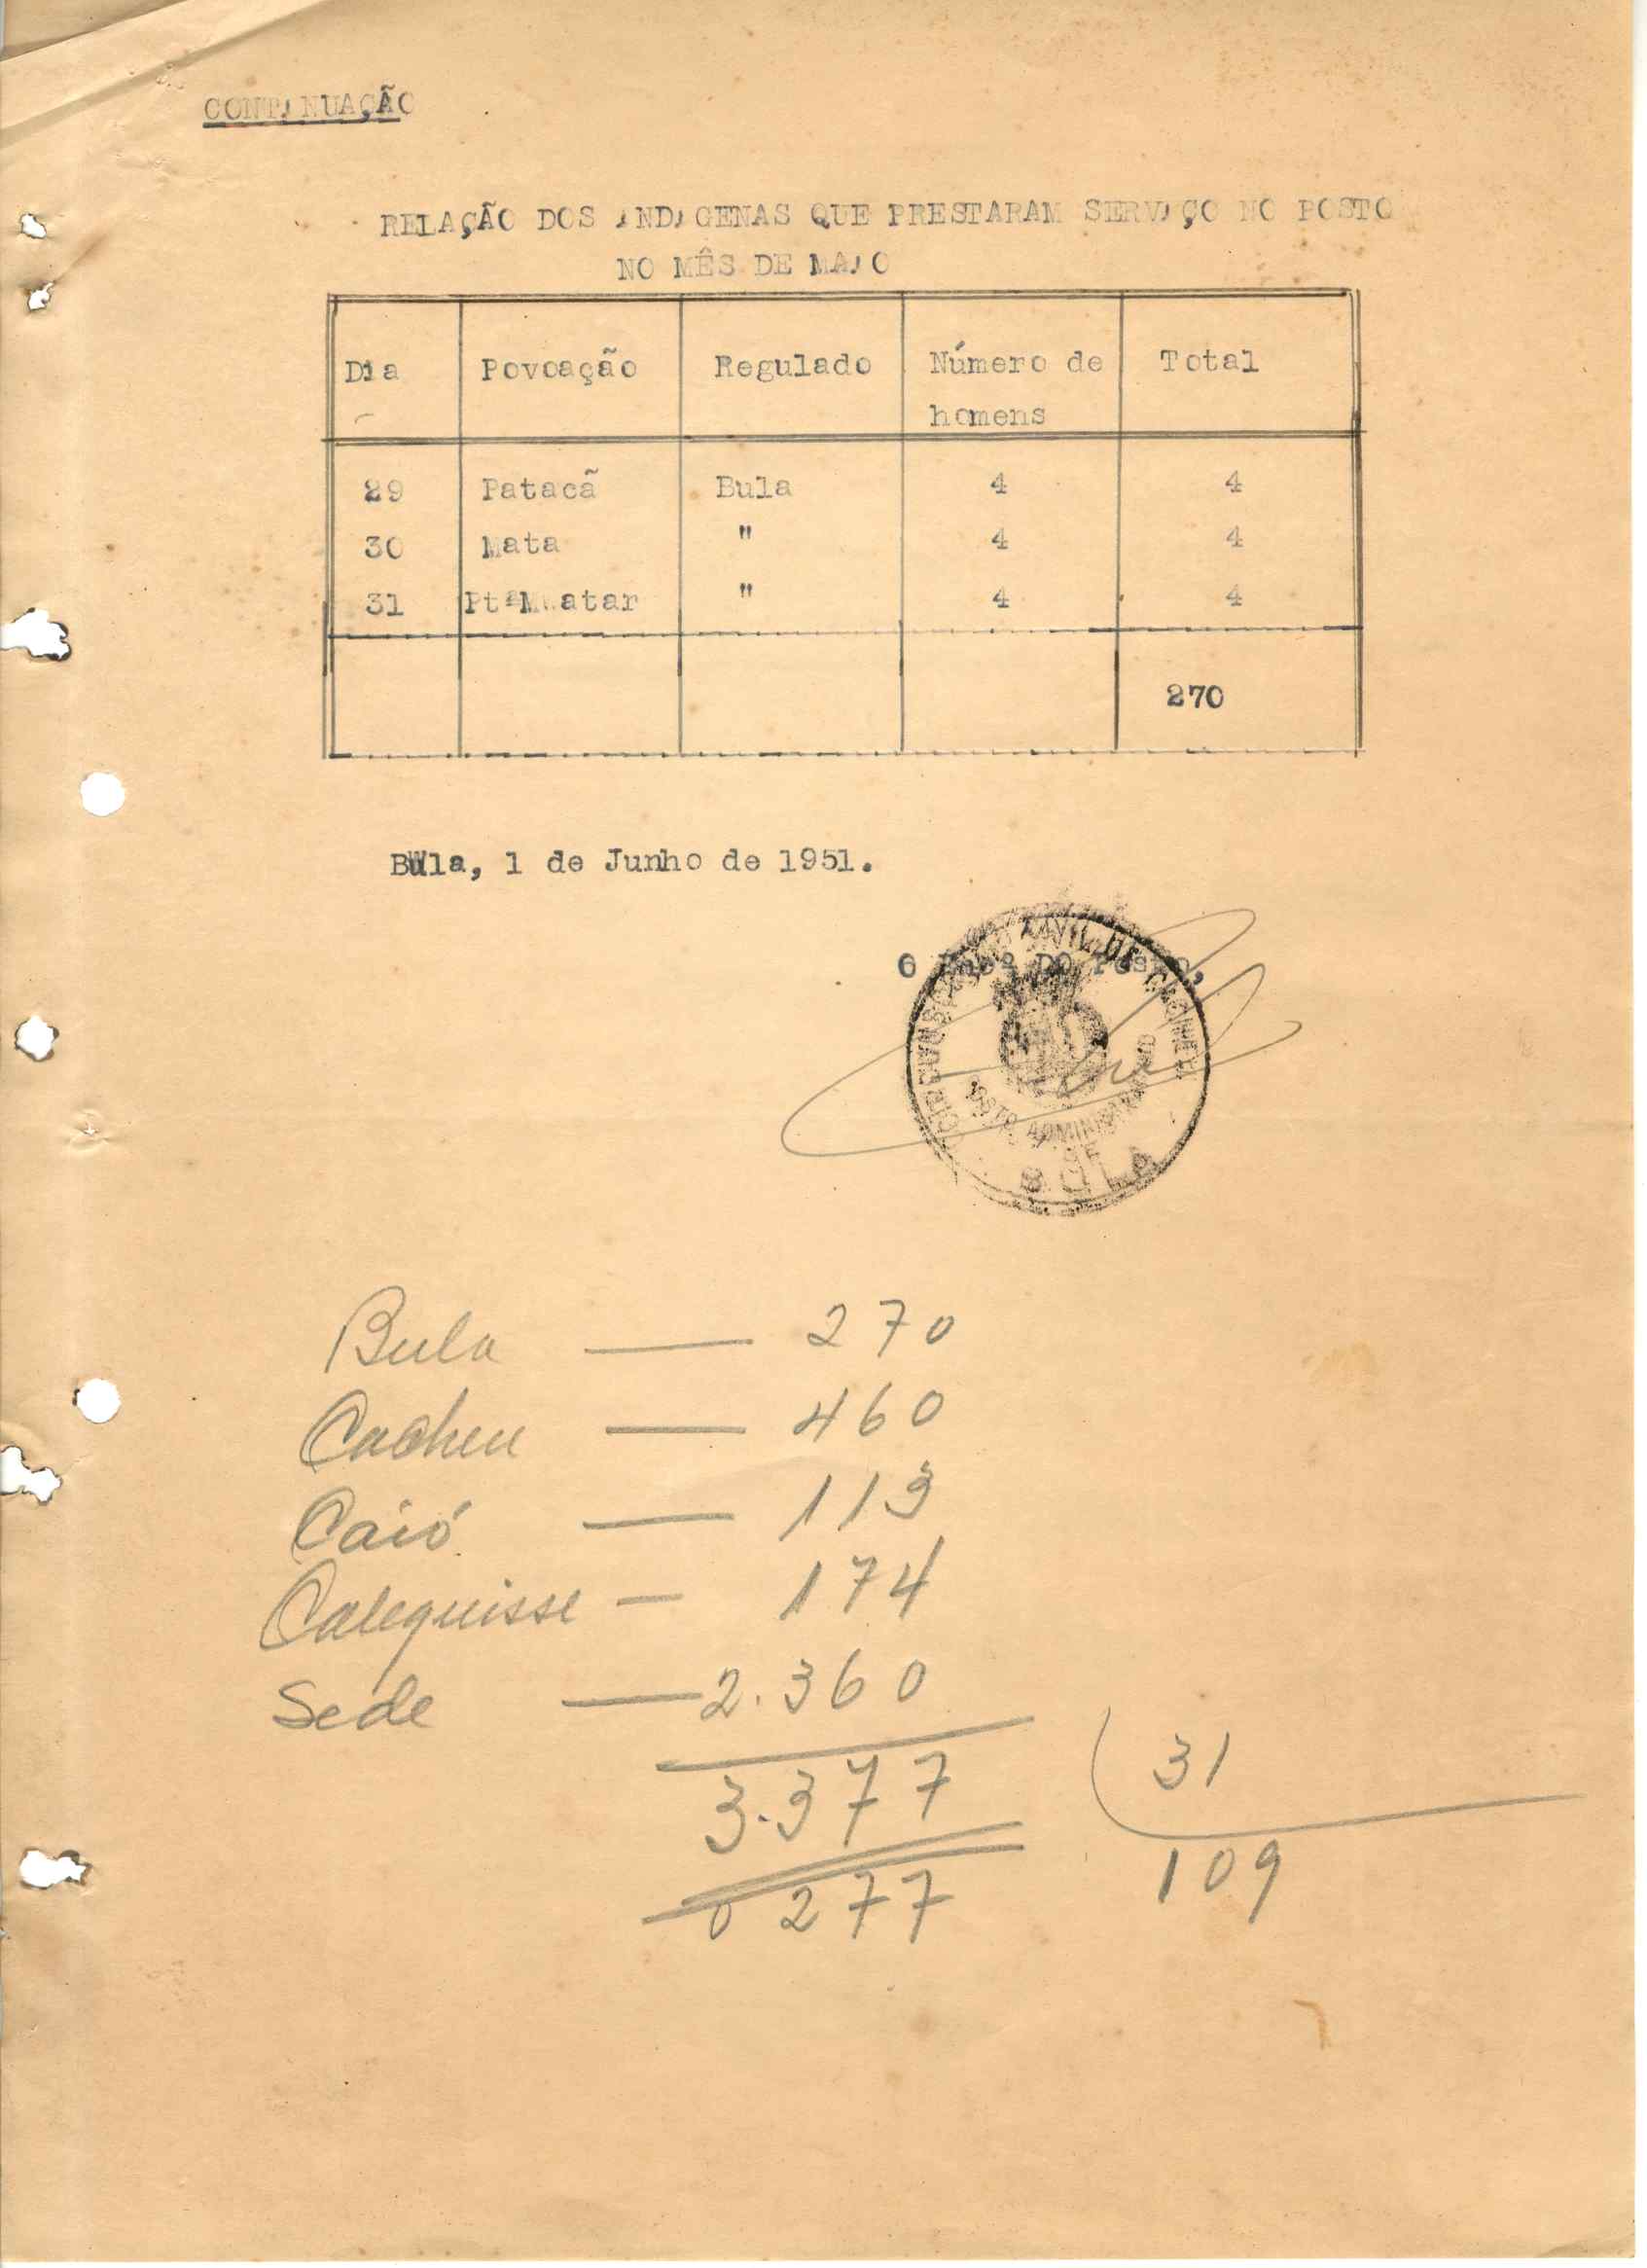 CONTINUAÇÃO
RELAÇÃO DOS INDIGENAS QUE PRESTARAM SERVIÇO NO POSTO
NO MÊS DE MAIO
Dia Povoação Regulado Número de homens Total
29 Patacã Bula 4 4
30 Mata " 4 4
31 Ptª atar " 4 4
270
Bula, 1 de Junho de 1951.
O DO Posto,
CIRCUNSCRIÇÃO CIVIL DE CACHEU
POSTO ADMINISTRATIVO
DE
BULA
Bula — 270
Cacheu — 460
Caió — 113
Calequisse — 174
Sede — 2.360
3.377 31
0277 109